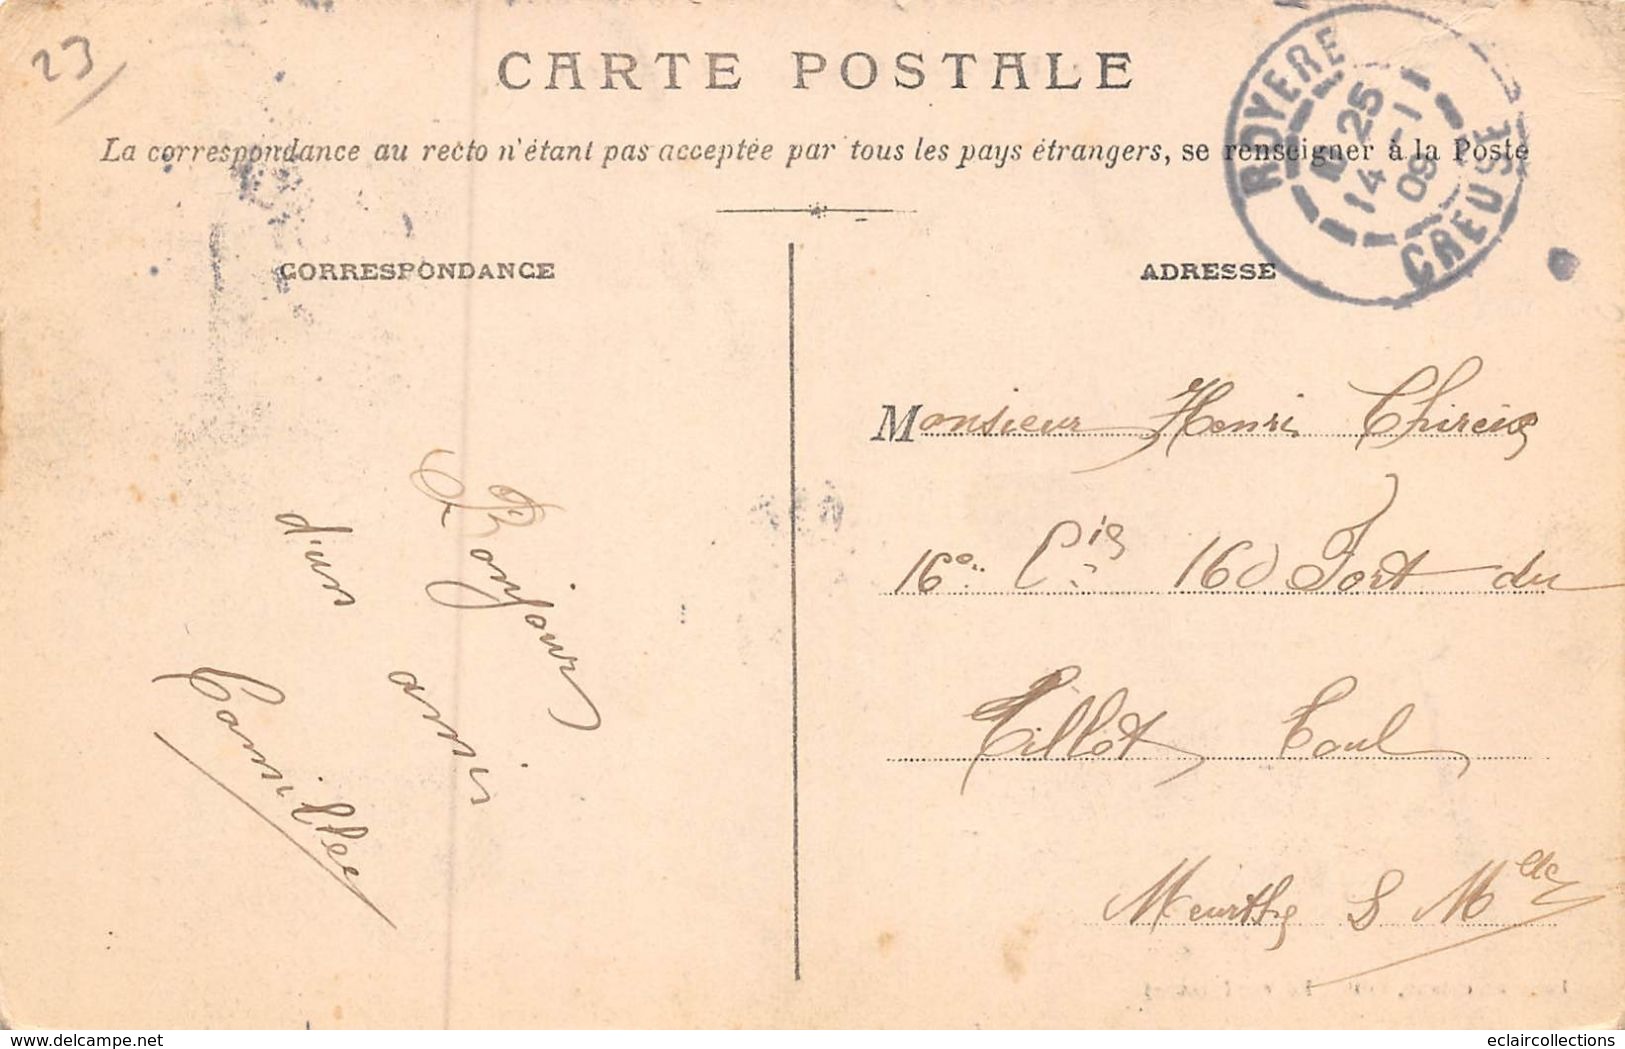 23
CARTE POSTALE
La correspondance au recto n'étant pas acceptée par tous les pays étrangers, se renseigner à la Poste
ROYERE
25
14 -1
09
CREUSE
CORRESPONDANCE
ADRESSE
Bonjour
d'un ami
Camille
Monsieur Henri
16e Cie 160 Fort du
Tillot Toul
Meurthe & Mlle
delcampe.net
eclaircollections